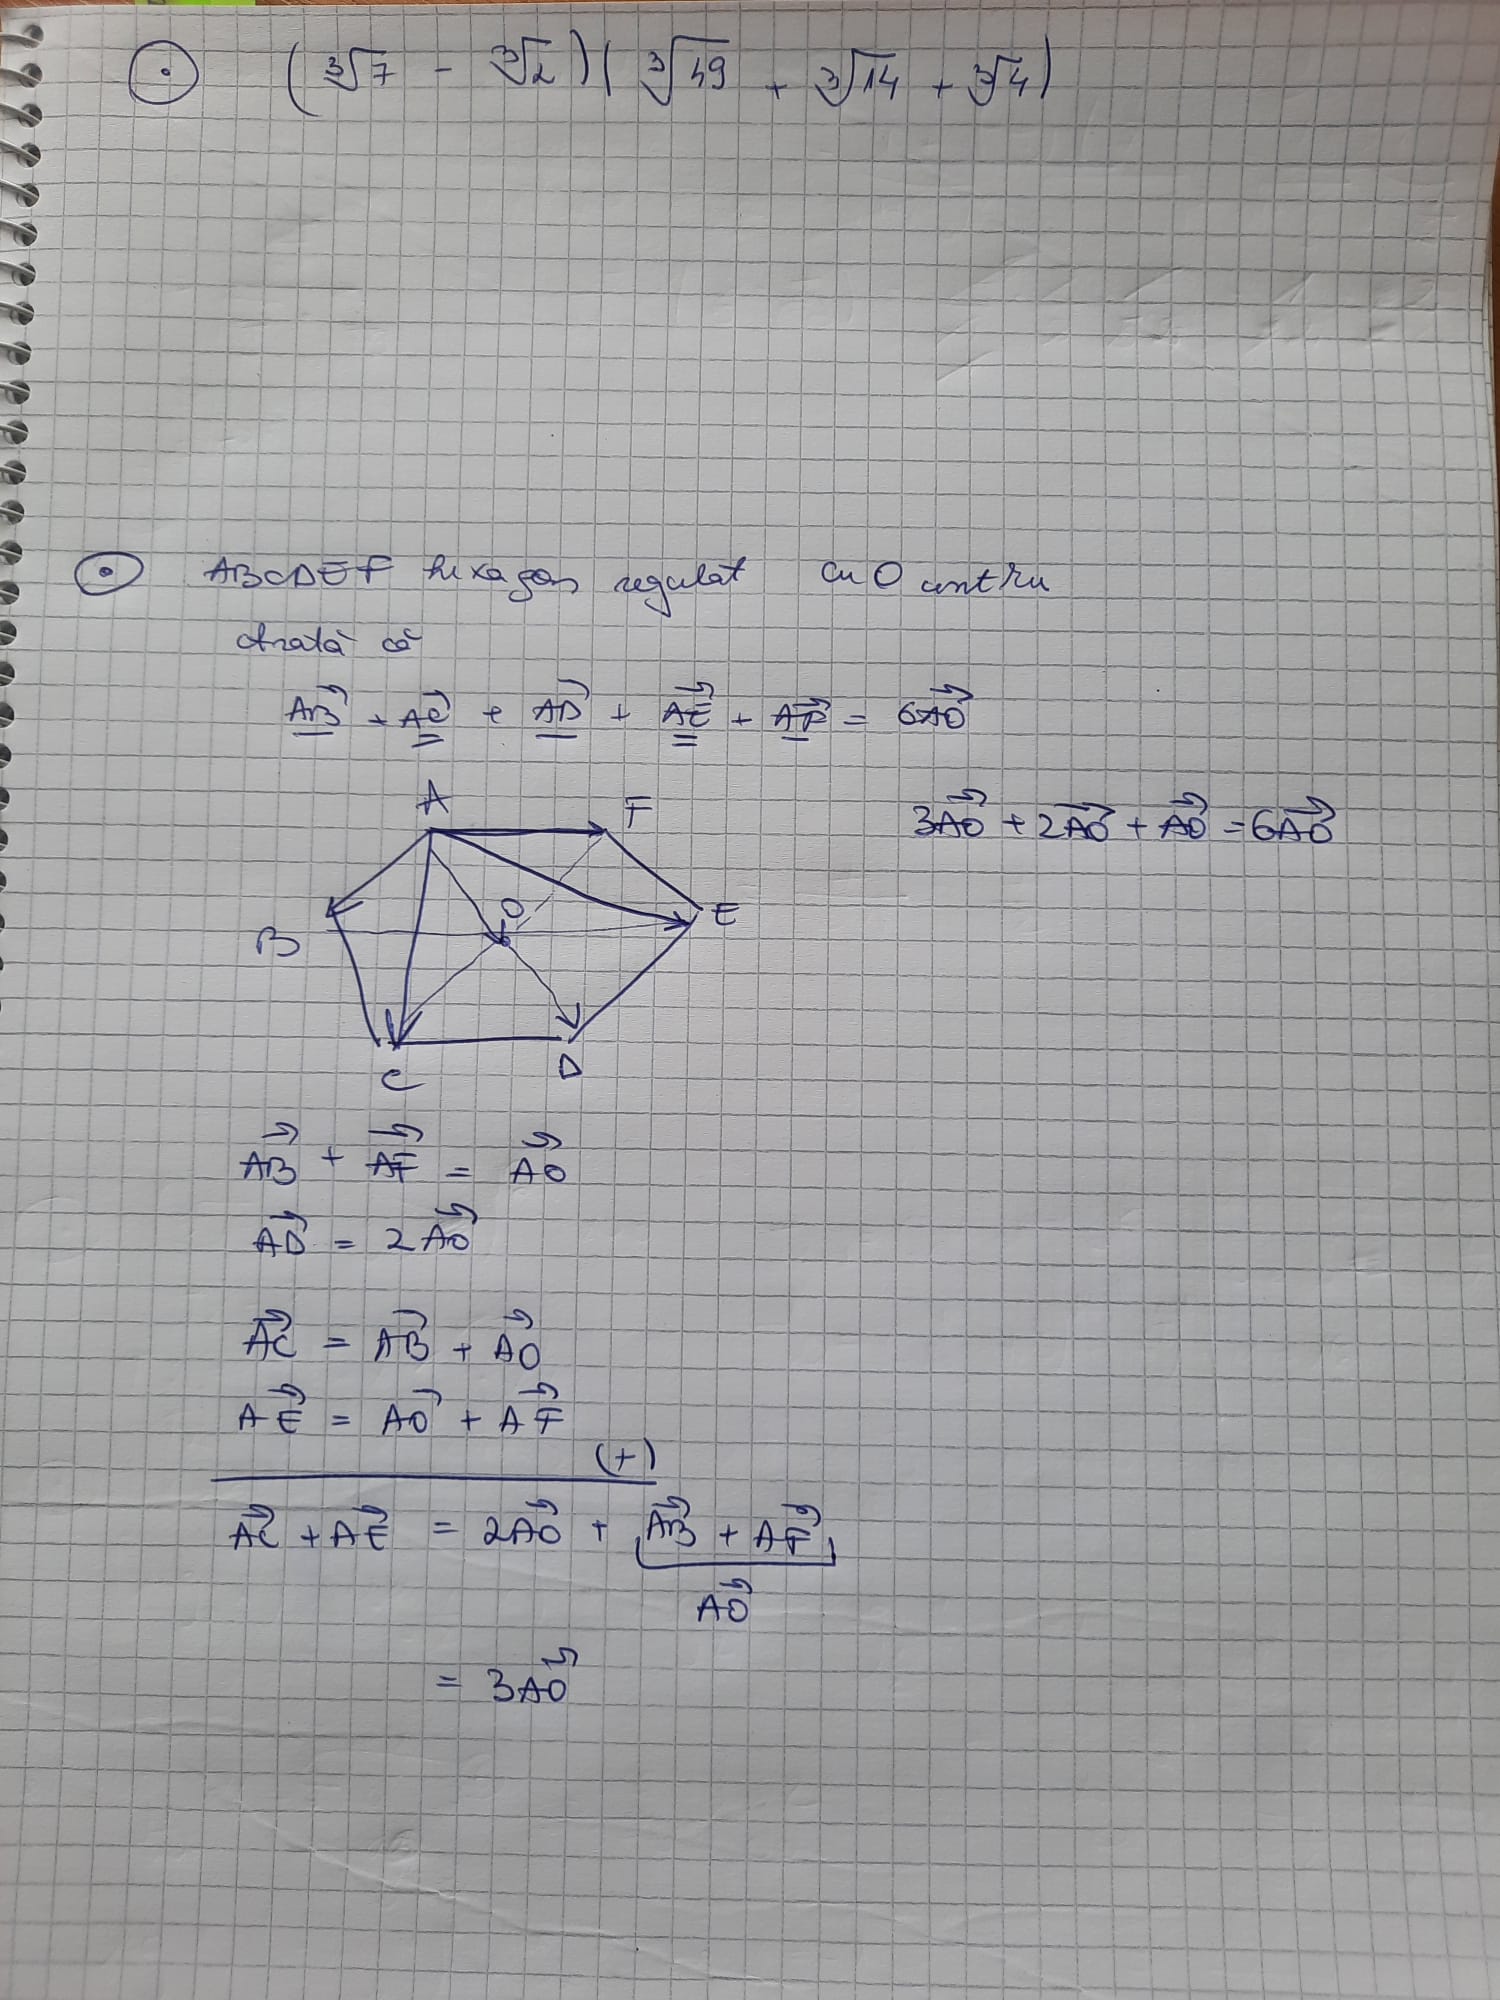 (∛7 - ∛2)(∛49 + ∛14 + ∛4)
ABCDEF hexagon regulat cu O centru
Arată că
AB⃗ + AC⃗ + AD⃗ + AE⃗ + AF⃗ = 6AO⃗
3AO⃗ + 2AO⃗ + AO⃗ = 6AO⃗
A F
B O E
C D
AB⃗ + AF⃗ = AO⃗
AD⃗ = 2AO⃗
AC⃗ = AB⃗ + AO⃗
AE⃗ = AO⃗ + AF⃗
(+)
AC⃗ + AE⃗ = 2AO⃗ + AB⃗ + AF⃗
AO⃗
= 3AO⃗